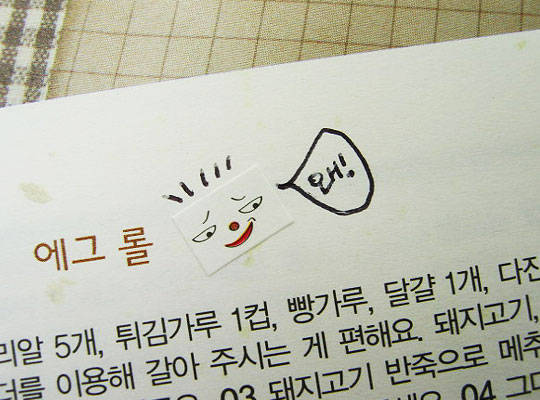 왜!
에그 롤
리알 5개, 튀김가루 1컵, 빵가루, 달걀 1개, 다진
더를 이용해 갈아 주시는 게 편해요. 돼지고기,
03 돼지고기 반죽으로 메추
04 그